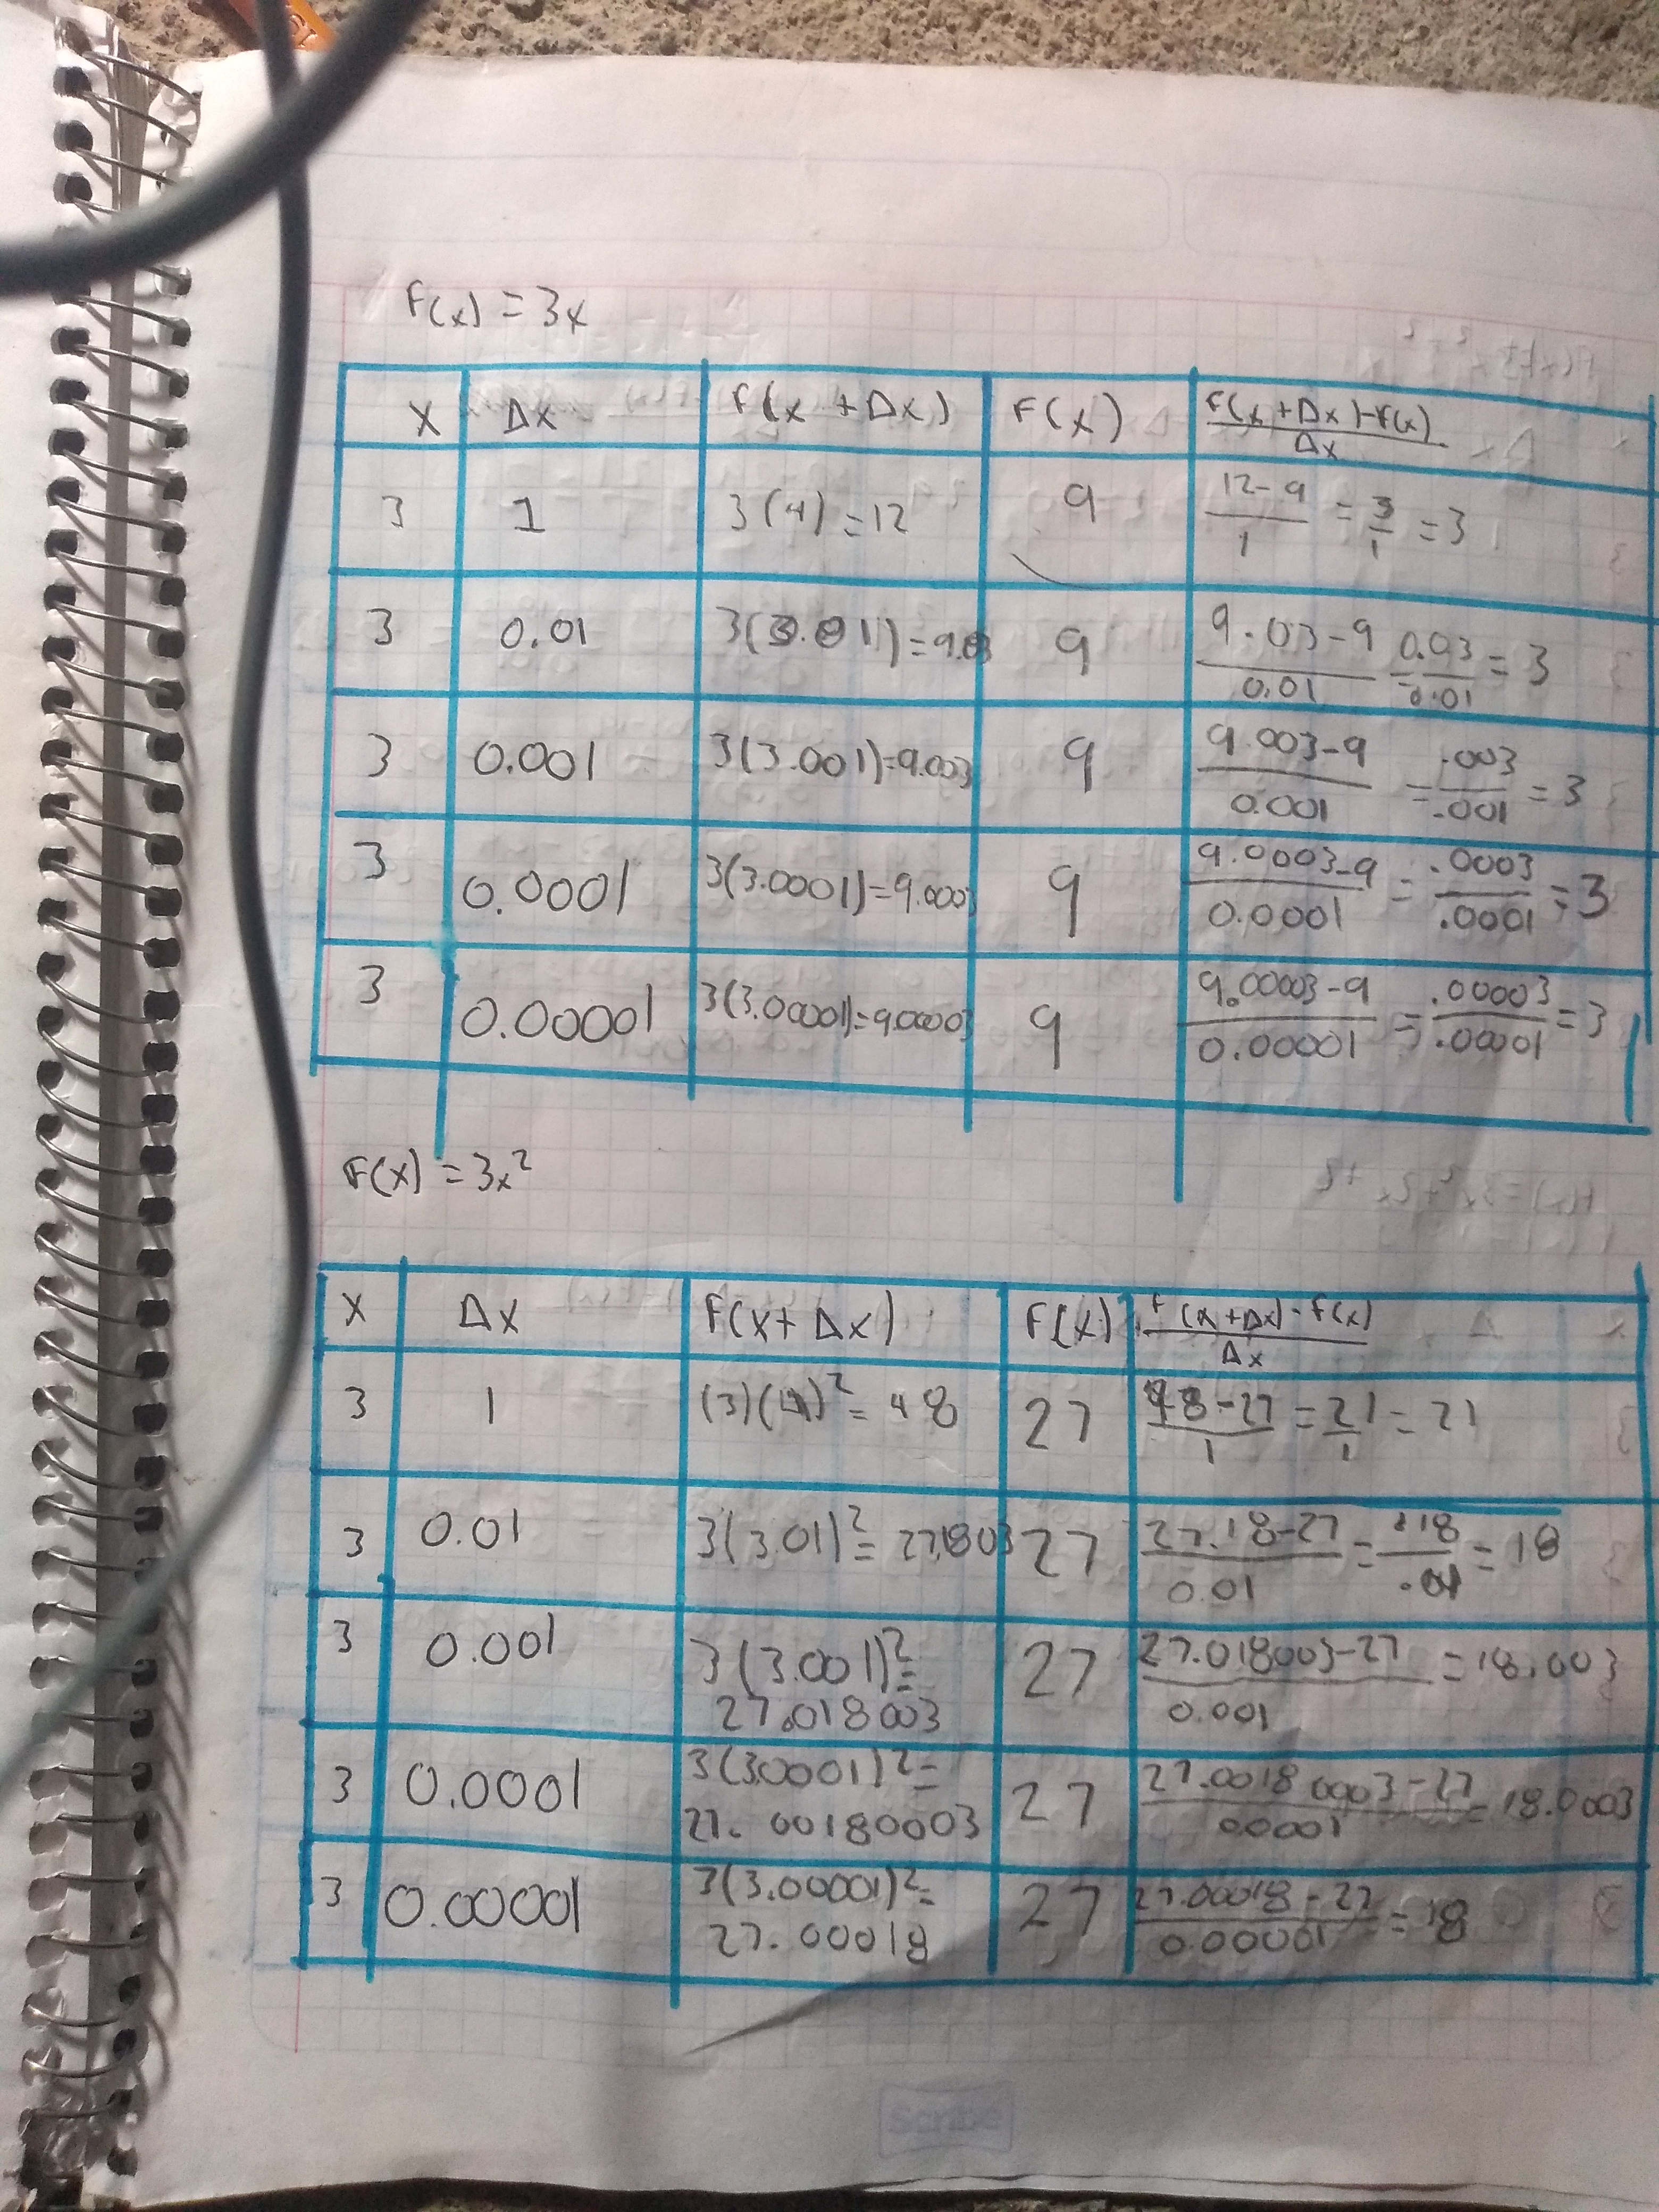 F(x) = 3x
x Δx F(x + Δx) F(x) F(x + Δx) - F(x) / Δx
3 1 3(4) = 12 9 12 - 9 / 1 = 3/1 = 3
3 0.01 3(3.01) = 9.03 9 9.03 - 9 / 0.01 = 0.03 / 0.01 = 3
3 0.001 3(3.001) = 9.003 9 9.003 - 9 / 0.001 = .003 / .001 = 3
3 0.0001 3(3.0001) = 9.0003 9 9.0003 - 9 / 0.0001 = .0003 / .0001 = 3
3 0.00001 3(3.00001) = 9.00003 9 9.00003 - 9 / 0.00001 = .00003 / .00001 = 3
F(x) = 3x²
x Δx F(x + Δx) F(x) F(x + Δx) - F(x) / Δx
3 1 (3)(4)² = 48 27 48 - 27 / 1 = 21/1 = 21
3 0.01 3(3.01)² = 27.1803 27 27.18 - 27 / 0.01 = .18 / .01 = 18
3 0.001 3(3.001)² = 27.018003 27 27.018003 - 27 / 0.001 = 18.003
3 0.0001 3(3.0001)² = 27.00180003 27 27.00180003 - 27 / 0.0001 = 18.0003
3 0.00001 3(3.00001)² = 27.00018 27 27.00018 - 27 / 0.00001 = 18
Scribe